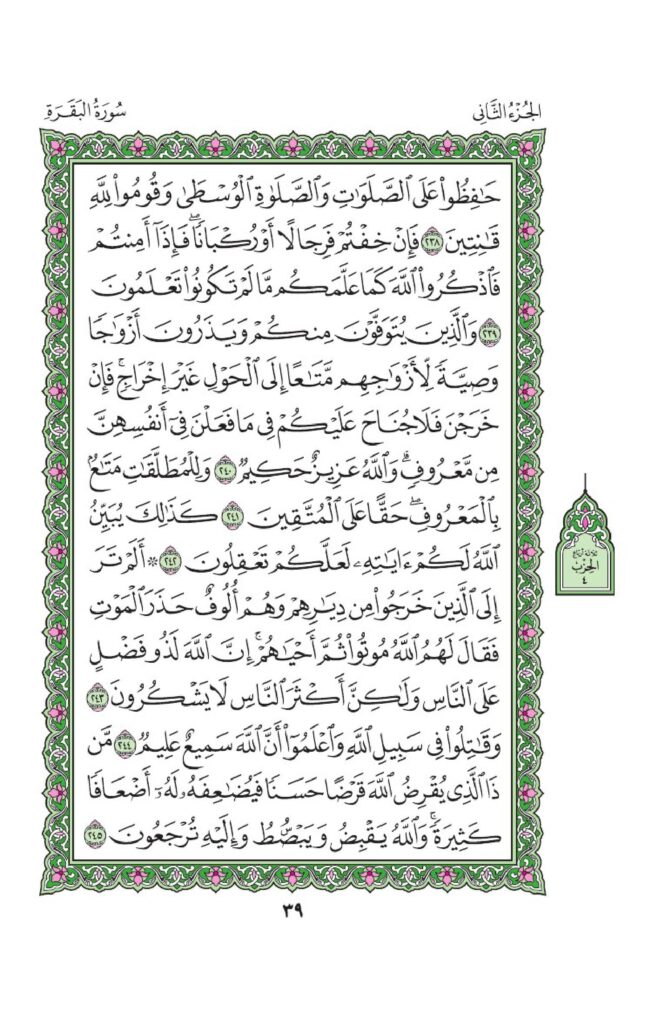 الجُزْءُ الثَّانِي
سُورَةُ البَقَرَةِ
حَٰفِظُوا۟ عَلَى ٱلصَّلَوَٰتِ وَٱلصَّلَوٰةِ ٱلْوُسْطَىٰ وَقُومُوا۟ لِلَّهِ
قَٰنِتِينَ ٢٣٨ فَإِنْ خِفْتُمْ فَرِجَالًا أَوْ رُكْبَانًا ۖ فَإِذَآ أَمِنتُمْ
فَٱذْكُرُوا۟ ٱللَّهَ كَمَا عَلَّمَكُم مَّا لَمْ تَكُونُوا۟ تَعْلَمُونَ
٢٣٩ وَٱلَّذِينَ يُتَوَفَّوْنَ مِنكُمْ وَيَذَرُونَ أَزْوَٰجًا
وَصِيَّةً لِّأَزْوَٰجِهِم مَّتَٰعًا إِلَى ٱلْحَوْلِ غَيْرَ إِخْرَاجٍ ۚ فَإِنْ
خَرَجْنَ فَلَا جُنَاحَ عَلَيْكُمْ فِى مَا فَعَلْنَ فِىٓ أَنفُسِهِنَّ
مِن مَّعْرُوفٍ ۗ وَٱللَّهُ عَزِيزٌ حَكِيمٌ ٢٤٠ وَلِلْمُطَلَّقَٰتِ مَتَٰعٌۢ
بِٱلْمَعْرُوفِ ۖ حَقًّا عَلَى ٱلْمُتَّقِينَ ٢٤١ كَذَٰلِكَ يُبَيِّنُ
ٱللَّهُ لَكُمْ ءَايَٰتِهِۦ لَعَلَّكُمْ تَعْقِلُونَ ٢٤٢ ۞ أَلَمْ تَرَ
إِلَى ٱلَّذِينَ خَرَجُوا۟ مِن دِيَٰرِهِمْ وَهُمْ أُلُوفٌ حَذَرَ ٱلْمَوْتِ
فَقَالَ لَهُمُ ٱللَّهُ مُوتُوا۟ ثُمَّ أَحْيَٰهُمْ ۚ إِنَّ ٱللَّهَ لَذُو فَضْلٍ
عَلَى ٱلنَّاسِ وَلَٰكِنَّ أَكْثَرَ ٱلنَّاسِ لَا يَشْكُرُونَ ٢٤٣
وَقَٰتِلُوا۟ فِى سَبِيلِ ٱللَّهِ وَٱعْلَمُوٓا۟ أَنَّ ٱللَّهَ سَمِيعٌ عَلِيمٌ ٢٤٤ مَّن
ذَا ٱلَّذِى يُقْرِضُ ٱللَّهَ قَرْضًا حَسَنًا فَيُضَٰعِفَهُۥ لَهُۥٓ أَضْعَافًا
كَثِيرَةً ۚ وَٱللَّهُ يَقْبِضُ وَيَبْصُۜطُ وَإِلَيْهِ تُرْجَعُونَ ٢٤٥
ثلاثة أرباع
الحِزْب
٤
٣٩